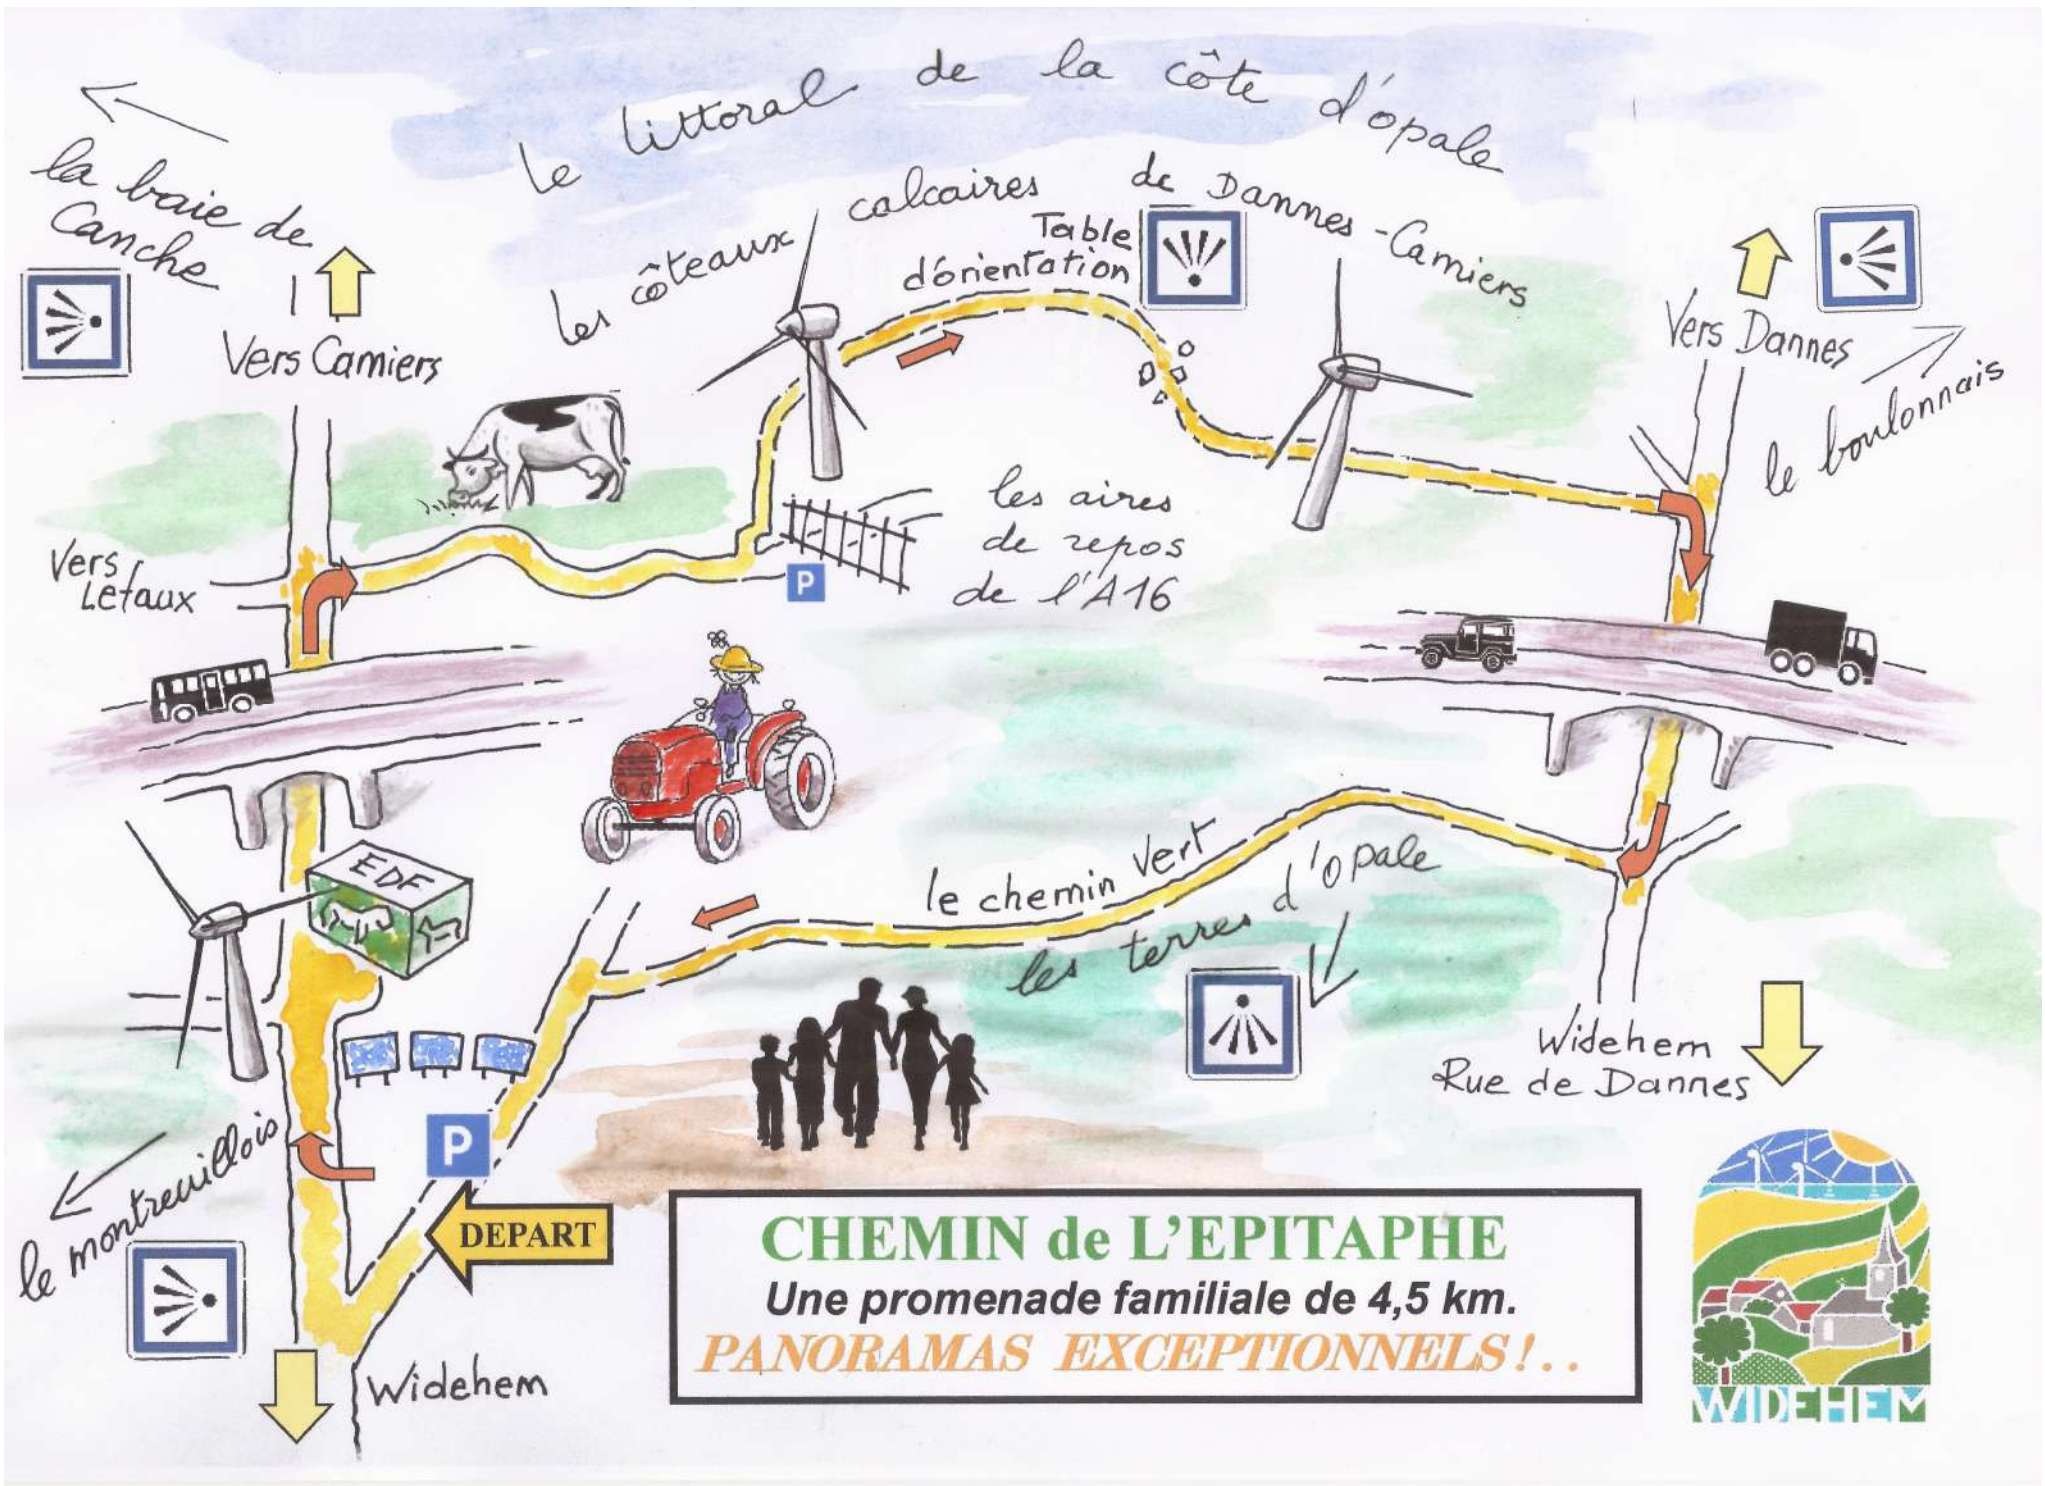 le littoral de la côte d'opale
la baie de
Canche
les côteaux calcaires de Dannes-Camiers
Table
d'orientation
Vers Camiers
Vers Dannes
le boulonnais
les aires
de repos
de l'A16
Vers
Lefaux
P
EDF
le chemin Vert
les terres d'opale
Widehem
Rue de Dannes
le montreuillois
P
DEPART
Widehem
CHEMIN de L'EPITAPHE
Une promenade familiale de 4,5 km.
PANORAMAS EXCEPTIONNELS!..
WIDEHEM